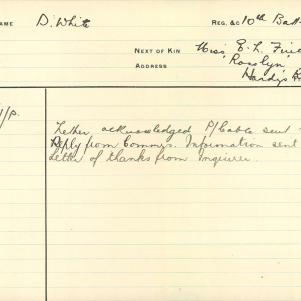 NAME D. White REG. &C 10th Batt
NEXT OF KIN Miss E. L.
ADDRESS "Rosslyn"
Hardys
Letter acknowledged P/Cable sent
Reply from Commrs. Information sent
Letter of thanks from Inquirer.